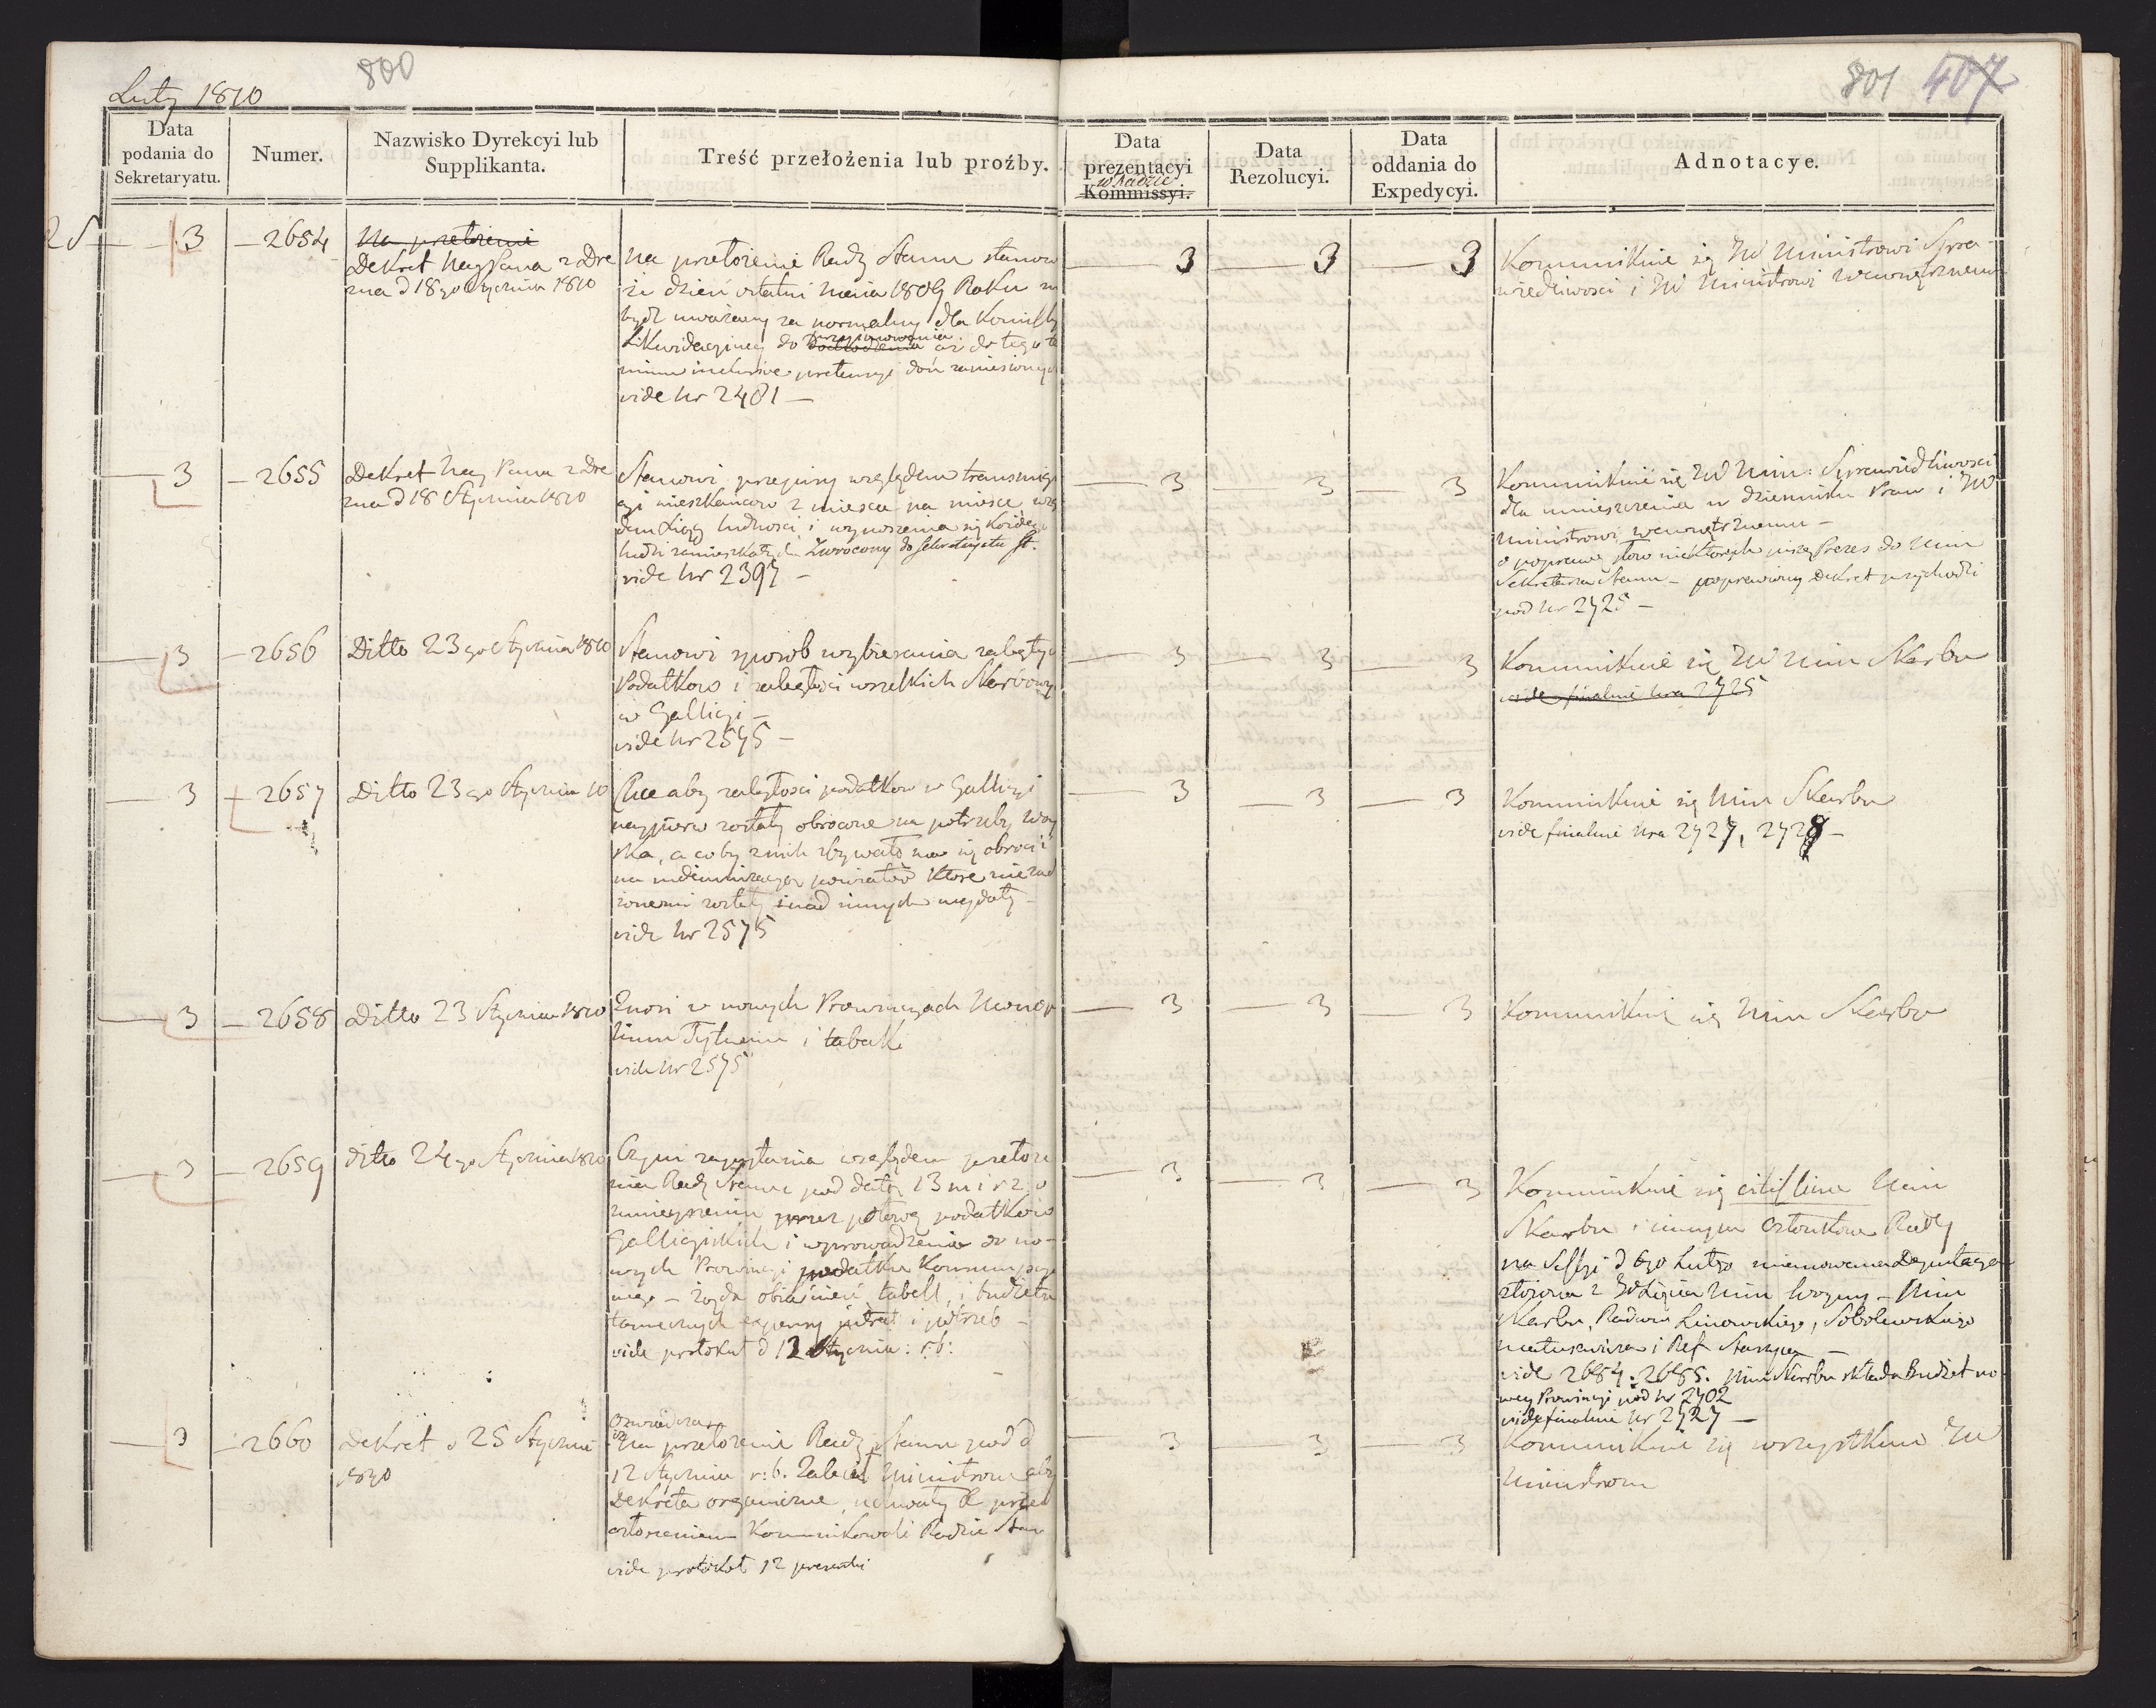 800
Luty 1810
801 407
Data podania do Sekretaryatu.
Numer.
Nazwisko Dyrekcyi lub Supplikanta.
Treść przełożenia lub prożby.
Data prezentacyi w Radzie Kommissyi.
Data Rezolucyi.
Data oddania do Expedycyi.
Adnotacye.
3
2654
Na przełożenie
Dekret Nay Pana z Dre
zna d 18go Stycznia 1810
Na przełożenie Rady Stanu stanow
że dzień ostatni Maia 1809 Roku m
bydź uważany za normalny dla Komissy
Likwidacyiney do przyimowania aż do tego te
minu inclusive pretensyi doń zaniesionych
vide Nr 2481 —
3
3
3
Kommunikuie się JW Ministrowi Spra-
wiedliwości i JW Ministrowi Wewnętrznemu
3
2655
Dekret Nay Pana z Dre
zna d 18 Stycznia 1810
Stanowi przepisy względem transmigr
cyi mieszkańcow z mieysca na mieysce wzg
dem Ligy ludności i wynoszenia się każdego
ludzi zamieszkałych Zwrocony do Sekretaryatu St.
vide Nr 2397 —
3
3
3
Kommunikuie się JW Min: Sprawiedliwości
dla umieszczenia w dzienniku Praw i JW
Ministrowi wewnętrznemu —
o poprawę słow niektorych pisze Prezes do Min
Sekretarza Stanu — poprawiony Dekret przychodzi
pod Nr 2725 —
3
2656
Ditto 23go Stycznia 1810
Stanowi sposob wybierania zaległych
Podatkow i zaległości wszelkich Skarbowy
w Gallicyi —
vide Nr 2575 —
3
3
3
Kommunikuie się JW Min Skarbu
vide finalnie Nra 2725
3
2657
Ditto 23go Stycznia 10
Chce aby zaległości podatkow w Gallicyi
naypierw zostały obrocone na potrzeby woy
ska, a coby z nich zbywało ma się obrocić
na indemnizacyą powiatow ktore nie zad
zonemi zostały i nad innych wydały —
vide Nr 2575
3
3
3
Kommunikuie się Min Skarbu
vide finalnie Nra 2727, 2728 —
3
2658
Ditto 23 Stycznia 1810
Znosi w nowych Prowincyach Monop
lium Tytuniu i tabaki
vide Nr 2575
3
3
3
Kommunikuie się Min Skarbu
3
2659
ditto 24go Stycznia 1810
Czyni zapytania względem przełoże
nia Rady Stanu pod datą 13 m i r z. o
zmnieyszeniu przez połowę podatkow
Gallicyiskich i wprowadzenia do no-
wych Prowincyi podatku Konsumpcyi
nego — żąda obiaśnień tabell, i budżetu
tamecznych expensy intrat i potrzeb —
vide protokuł d 12 Stycznia: r. b:
3
3
3
Kommunikuie się citissime Min
Skarbu i innym Członkom Rady
na Sessyi d 6go Lutego mianowana Deputacya
złożona z Xcia Min Woyny — Min
Skarbu, Radcow Linowskiego, Sobolewskiego
Matuszewicza i Ref Staszyca —
vide 2684. 2685. Min Skarbu składa Budżet no
wey Prowincyi pod Nr 2702
vide finalnie Nr 2727 —
3
2660
Dekret d 25 Stycznia
1810
Oswiadcza
Na przełożenie Rady Stanu pod d
12 Stycznia r: b. Zalecił Ministrom aby
Dekreta organiczne, uchwały &c przed
ogłoszeniem Kommunikowali Radzie Stan
vide protokoł 12 praesentis
3
3
3
Kommunikuie się wszystkim JW
Ministrom